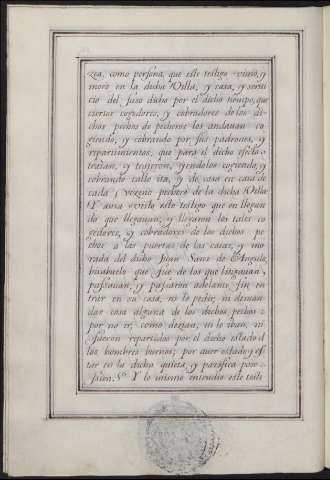 zea, como persona, que este testigo vivio, y
moro en la dicha Villa, y casa, y servi
cio del suso dicho por el dicho tiempo, que
ciertos cogedores, y cobradores de los di
chos pechos de pecheros los andauan co
giendo, y cobrando por sus padrones, y
repartimientos, que para el dicho efecto
trahian, y trojeron, yendolos cogiendo, y
cobrando calle ita, y de casa en casa de
cada vezino pechero de la dicha Villa
Y auia visto este testigo que en llegan
do que llegauan, y llegaron los tales co
gedores, y cobradores de los dichos pe
chos a las puertas de las casas, y mo
rada del dicho Juan Sanz de Angulo,
bisabuelo que fue de los que litigauan,
passauan, y passaron adelante sin en
trar en su casa, ni le pedir, ni deman
dar cosa alguna de los dichos pechos:
por no ir, como dezian, ni le iban, ni
fueron repartidos por el dicho estado d
los hombres buenos; por auer estado y es
tar en la dicha quieta, y pacifica pos-
sesion. Y lo mismo entendio este testi